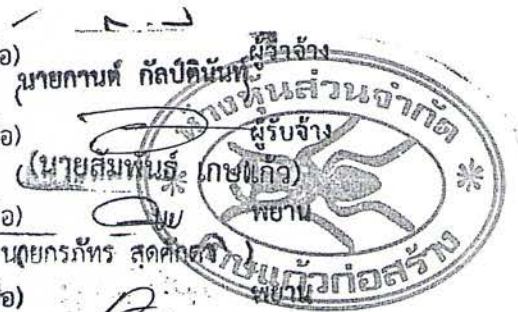 อ) ผู้ว่าจ้าง
นายกานต์ กัลป์ตินันท์
อ) ผู้รับจ้าง
(นายสัมพันธ์ เกษแก้ว)
อ) พยาน
นายกรภัทร
อ) พยาน
ห้างหุ้นส่วนจำกัด
เกษแก้วก่อสร้าง